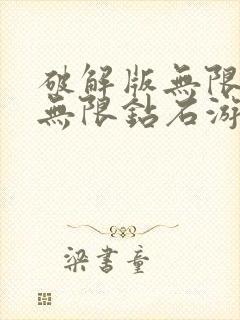 破解版無限
無限鉆石游
梁書童